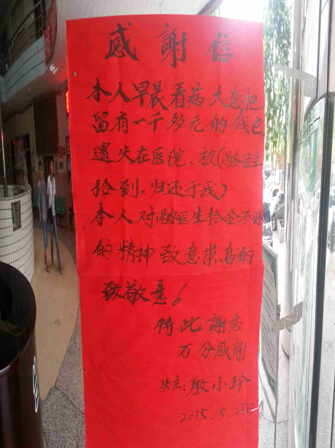 感謝信
本人早晨看病大意把
留有一千多元的钱包
遗失在医院，被(医生
拾到，归还于我)
本人对医生拾金不
的精神致意崇高的
致敬意!
特此謝意
万分感謝
殷小玲
2015.5.